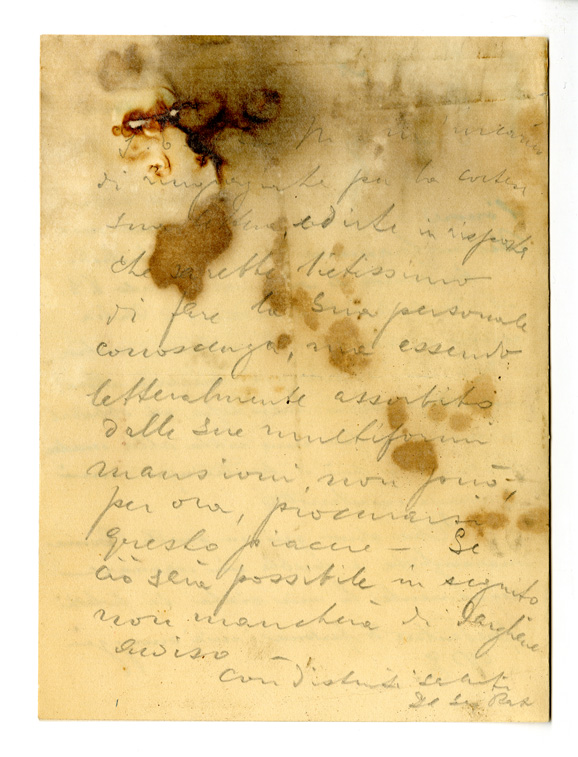 di per la
in risposta
che sarebbe lietissimo
di fare la sua personale
conoscenza, ma essendo
letteralmente assorbito
dalle sue multiformi
mansioni, non può,
per ora, procurarsi
questo piacere - Se
ciò sarà possibile in seguito
non mancherà di dargliene
avviso
con distinti saluti